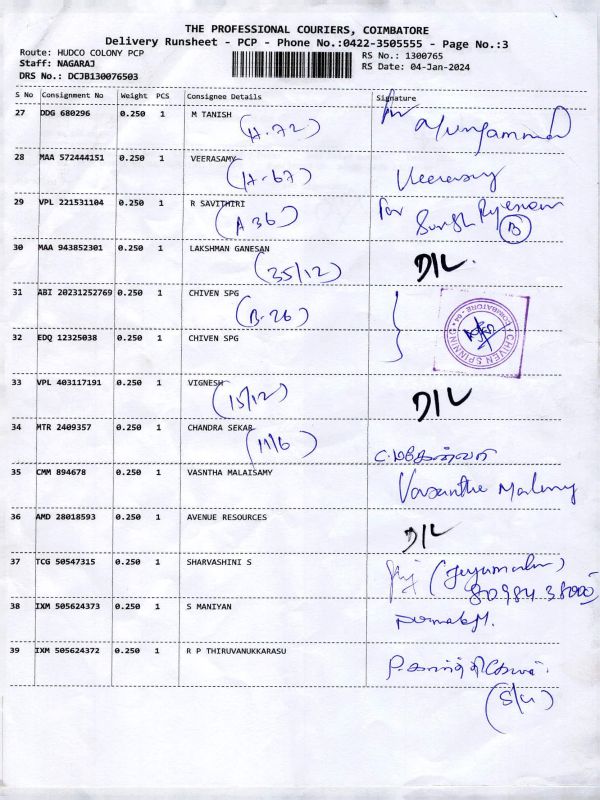 THE PROFESSIONAL COURIERS, COIMBATORE
Delivery Runsheet - PCP - Phone No.:0422-3505555 - Page No.:3
Route: HUDCO COLONY PCP RS No.: 1300765
Staff: NAGARAJ RS Date: 04-Jan-2024
DRS No.: DCJB130076503
S No Consignment No Weight PCS Consignee Details Signature
27 DDG 680296 0.250 1 M TANISH for
(H-72)
28 MAA 572444151 0.250 1 VEERASAMY Veerasamy
(H-67)
29 VPL 221531104 0.250 1 R SAVITHIRI For
(A 36) B
30 MAA 943852301 0.250 1 LAKSHMAN GANESAN D/L.
(35/12)
31 ABI 20231252769 0.250 1 CHIVEN SPG
(B-26) CHIVEN SPINNING COIMBATORE - 04
32 EDQ 12325038 0.250 1 CHIVEN SPG
33 VPL 403117191 0.250 1 VIGNESH D/L
(15/12)
34 MTR 2409357 0.250 1 CHANDRA SEKAR
(11/6)
35 CMM 894678 0.250 1 VASNTHA MALAISAMY Vasantha
36 AMD 28018593 0.250 1 AVENUE RESOURCES D/L
37 TCG 50547315 0.250 1 SHARVASHINI S
38 IXM 505624373 0.250 1 S MANIYAN
39 IXM 505624372 0.250 1 R P THIRUVANUKKARASU